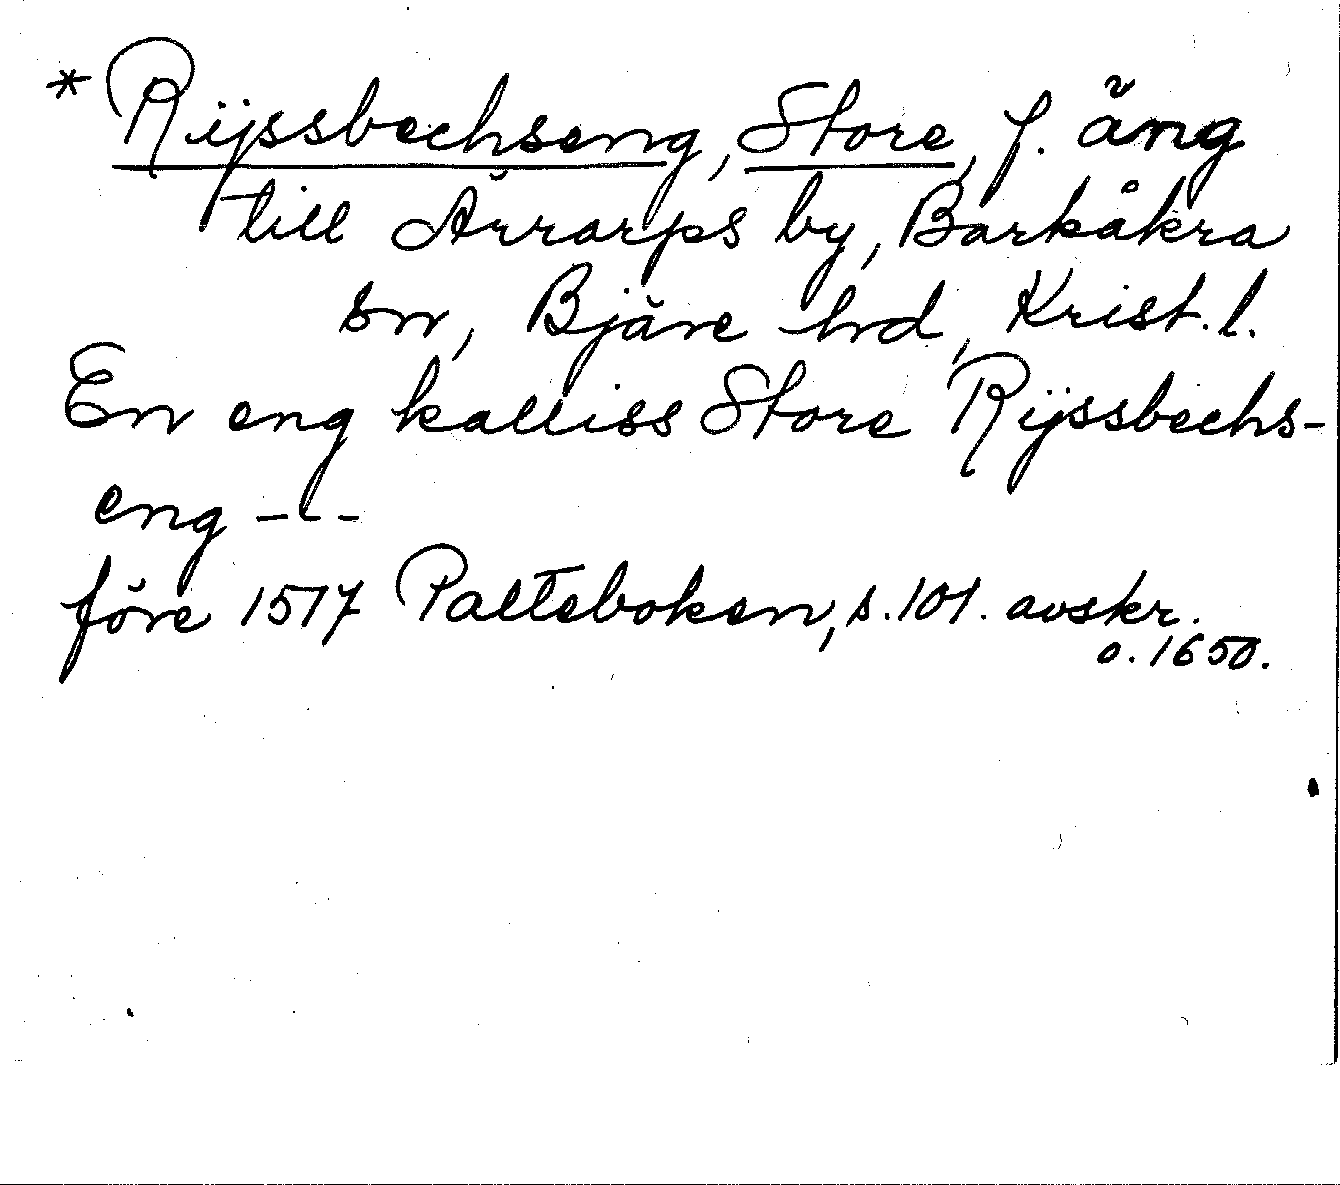 * Rijssbechseng, Store, f. äng
till Ärrarps by, Barkåkra
sn, Bjäre hd, Krist. l.
En eng kalliss Store Rijssbechs-
eng ---
före 1517 Palteboken, s. 101. avskr.
o. 1650.